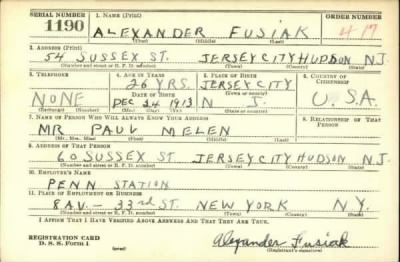 SERIAL NUMBER 1. NAME (Print) ORDER NUMBER
1190 ALEXANDER FUSIAK 417
(First) (Middle) (Last)
2. ADDRESS (Print)
54 SUSSEX ST. JERSEY CITY HUDSON N.J.
(Number and street or R. F. D. number) (Town) (County) (State)
3. TELEPHONE 4. AGE IN YEARS 5. PLACE OF BIRTH 6. COUNTRY OF CITIZENSHIP
26 YRS. JERSEY CITY
DATE OF BIRTH (Town or county)
NONE DEC 24 1913 N J. U.S.A.
(Exchange) (Number) (Mo.) (Day) (Yr.) (State or country)
7. NAME OF PERSON WHO WILL ALWAYS KNOW YOUR ADDRESS 8. RELATIONSHIP OF THAT PERSON
MR PAUL MELEN
(Mr., Mrs., Miss) (First) (Middle) (Last)
9. ADDRESS OF THAT PERSON
60 SUSSEX ST. JERSEY CITY HUDSON N.J.
(Number and street or R. F. D. number) (Town) (County) (State)
10. EMPLOYER'S NAME
PENN STATION
11. PLACE OF EMPLOYMENT OR BUSINESS
8 AV - 33rd ST. NEW YORK N.Y.
(Number and street or R. F. D. number) (Town) (County) (State)
I AFFIRM THAT I HAVE VERIFIED ABOVE ANSWERS AND THAT THEY ARE TRUE.
REGISTRATION CARD
D. S. S. Form 1 Alexander Fusiak
(Registrant's signature)